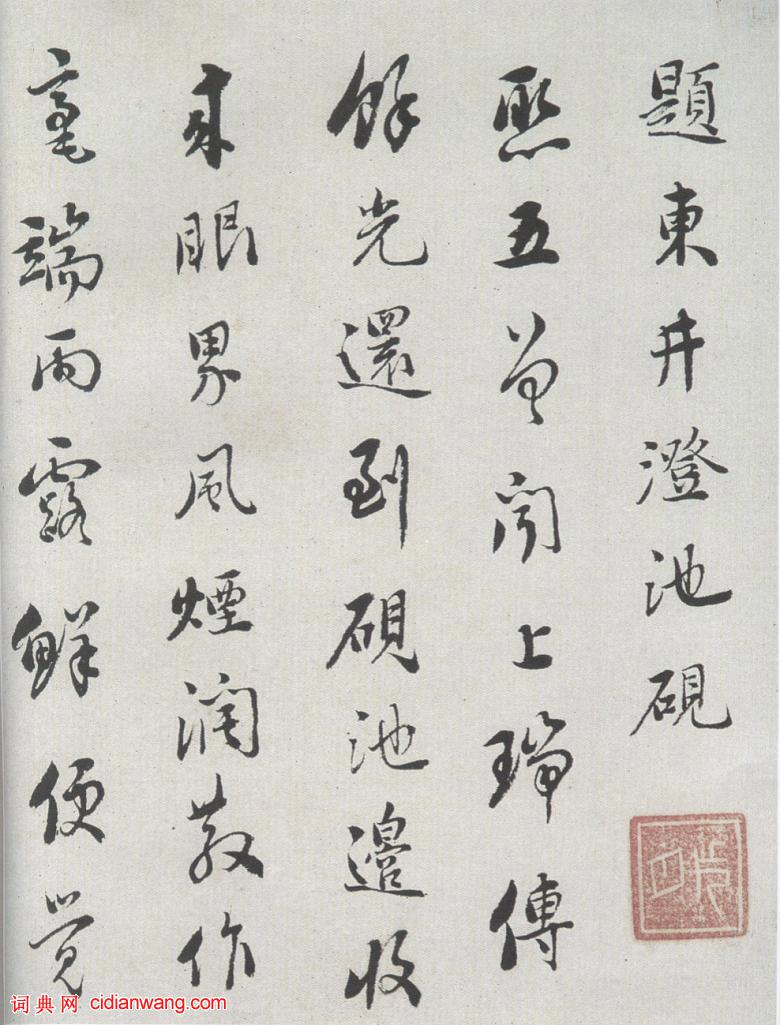 題東井澄池硯
聚五曾聞上瑞傳
餘光還到硯池邊收
來眼界風煙潤散作
毫端雨露鮮便覺
词典网 cidianwang.com